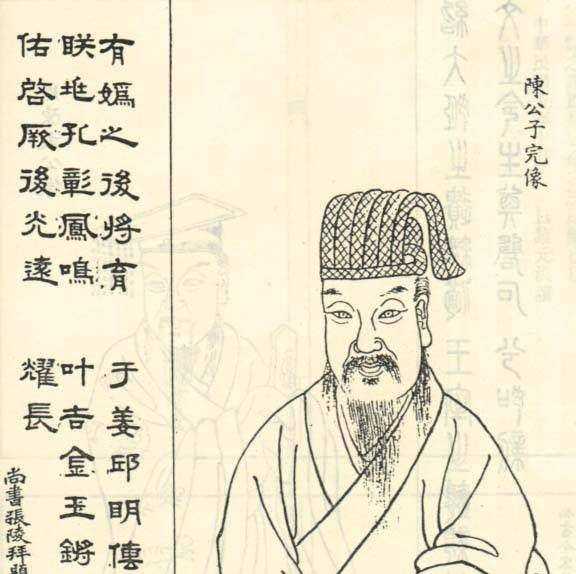 陳公子完像
有媯之後將育于姜邱明傳
眹兆孔彰鳳鳴叶吉金玉鏘
佑啓厥後光遠耀長
尚書張陵拜題